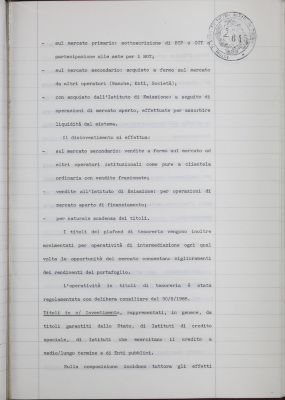 - sul mercato primario: sottoscrizione di BTP e CCT e
partecipazione alle aste per i BOT;
- sul mercato secondario: acquisto a fermo sul mercato
da altri operatori (Banche, Enti, Società);
- con acquisto dall'Istituto di Emissione: a seguito di
operazioni di mercato aperto, effettuate per assorbire
liquidità dal sistema.
Il disinvestimento si effettua:
- sul mercato secondario: vendite a fermo sul mercato ad
altri operatori istituzionali come pure a clientela
ordinaria con vendite frazionate;
- vendite all'Istituto di Emissione: per operazioni di
mercato aperto di finanziamento;
- per naturale scadenza dei titoli.
I titoli del plafond di tesoreria vengono inoltre
movimentati per operatività di intermediazione ogni qual
volta le opportunità del mercato consentano miglioramenti
dei rendimenti del portafoglio.
L'operatività in titoli di tesoreria è stata
regolamentata con delibera consiliare del
Titoli in c/ investimento, rappresentati, in genere, da
titoli garantiti dallo Stato, di Istituti di credito
speciale, di Istituti che esercitano il credito a
medio/lungo termine e di Enti pubblici.
Sulla composizione incidono tuttora gli effetti